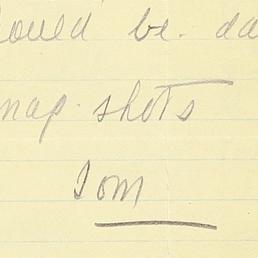 ould be da
nap. shots
Tom